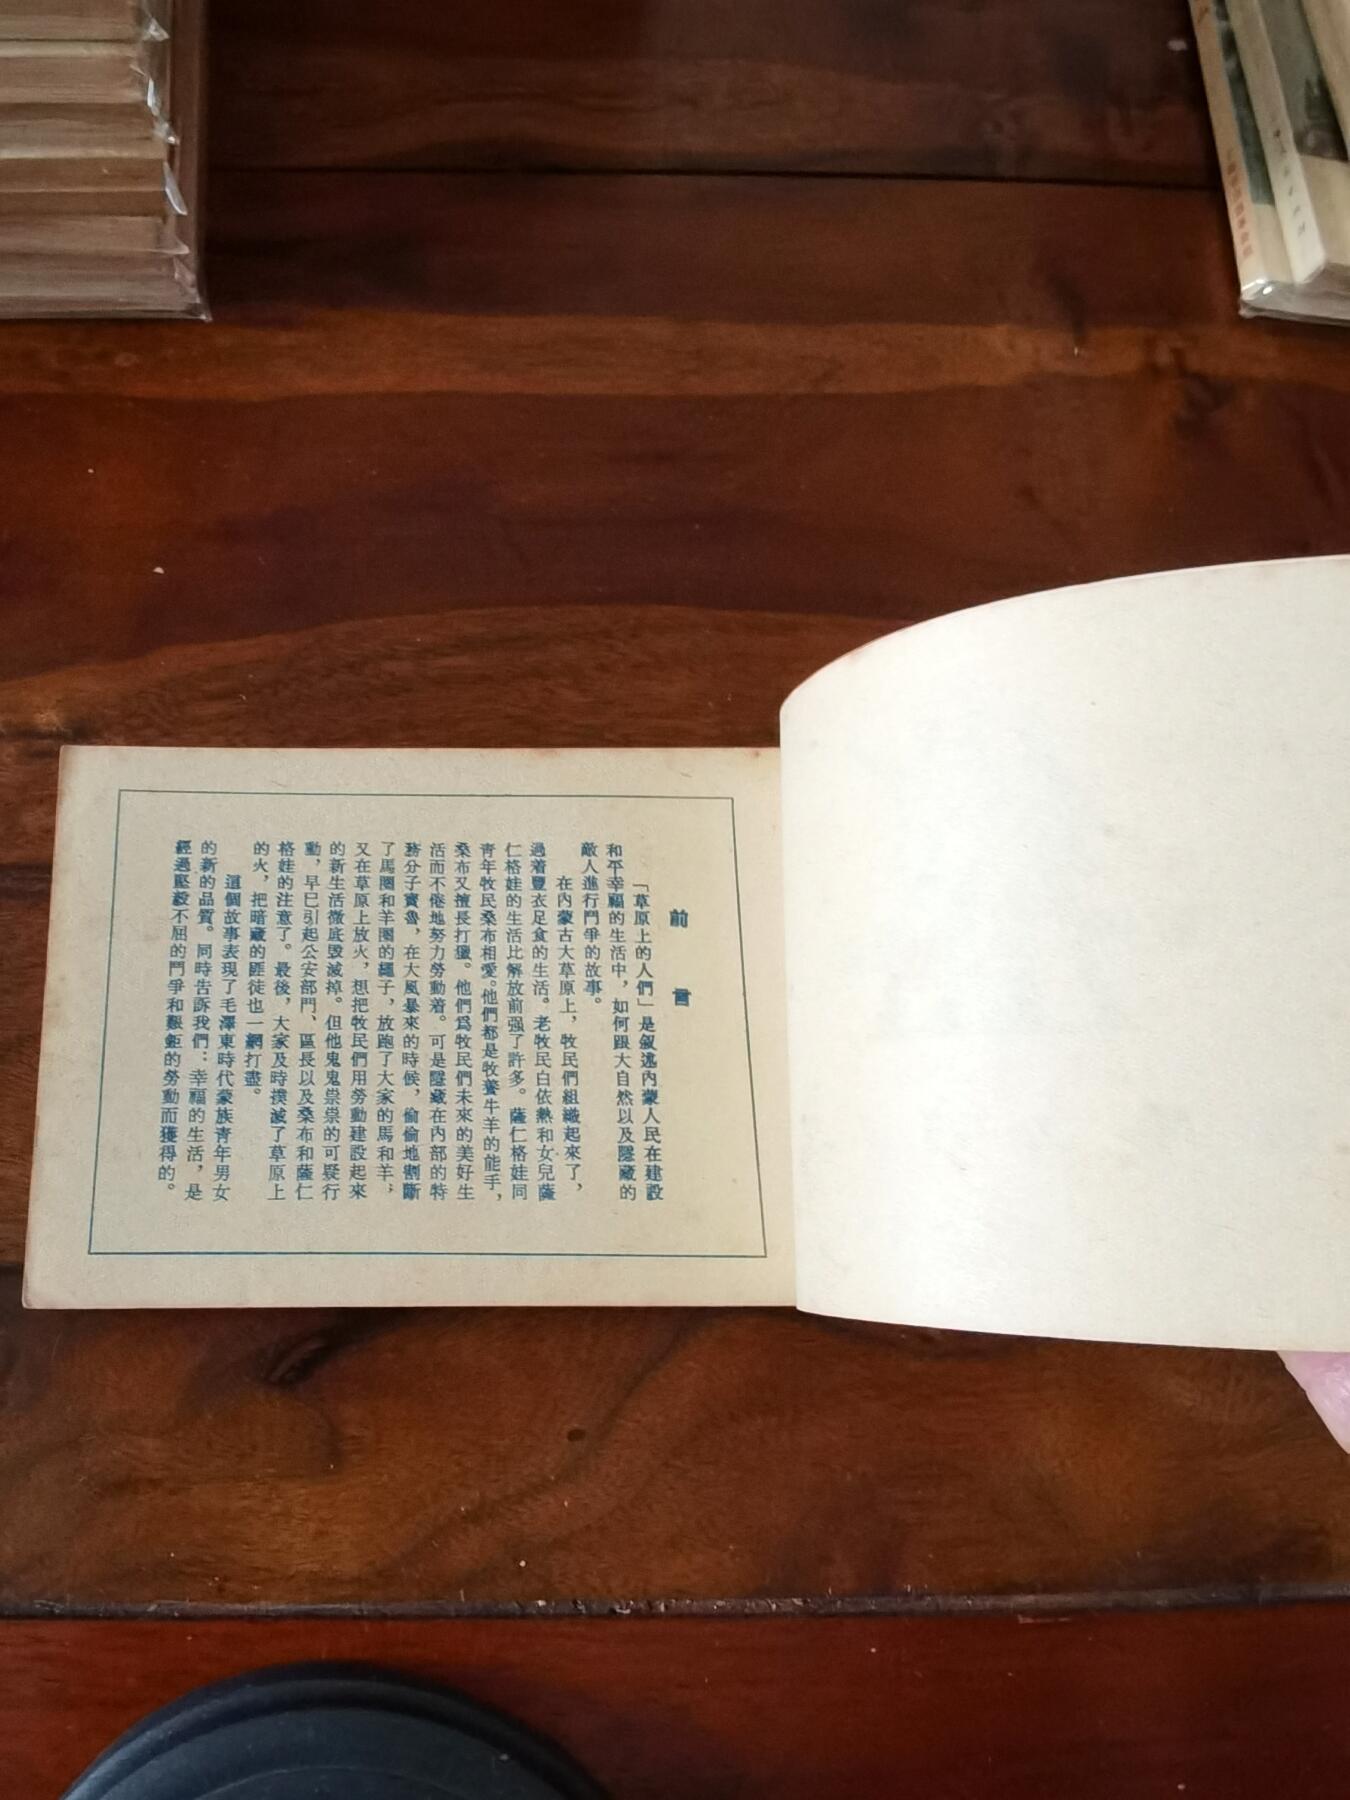 前言
「草原上的人們」是叙述內蒙人民在建設
和平幸福的生活中，如何跟大自然以及隱藏的
敵人進行鬥爭的故事。
在內蒙古大草原上，牧民們組織起來了，
過着豐衣足食的生活。老牧民白依熱和女兒薩
仁格娃的生活比解放前强了許多。薩仁格娃同
青年牧民桑布相愛。他們都是牧養牛羊的能手，
桑布又擅長打獵。他們爲牧民們未來的美好生
活而不倦地努力勞動着。可是隱藏在內部的特
務分子寳魯，在大風暴來的時候，偷偷地割斷
了馬圈和羊圈的繩子，放跑了大家的馬和羊；
又在草原上放火，想把牧民們用勞動建設起來
的新生活徹底毀滅掉。但他鬼鬼祟祟的可疑行
動，早已引起公安部門、區長以及桑布和薩仁
格娃的注意了。最後，大家及時撲滅了草原上
的火，把暗藏的匪徒也一網打盡。
這個故事表現了毛澤東時代蒙族青年男女
的新的品質。同時告訴我們：幸福的生活，是
經過堅毅不屈的鬥爭和艱鉅的勞動而獲得的。